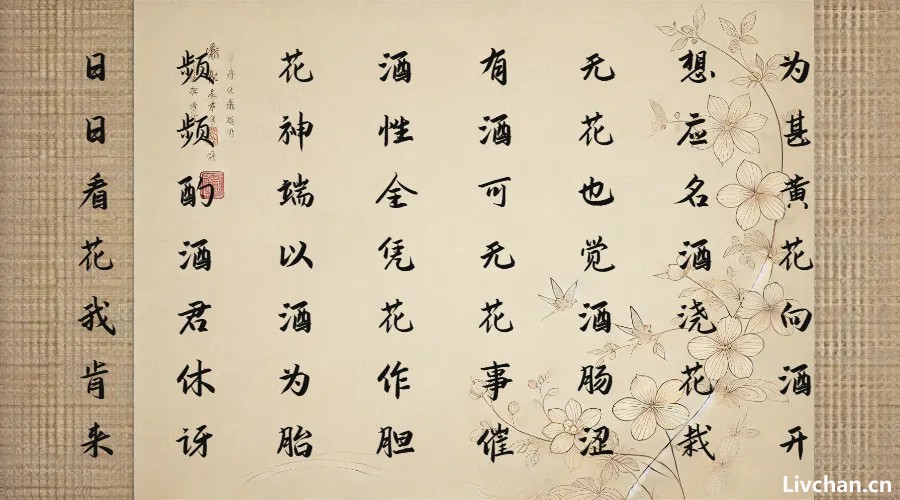 为甚黄花向酒开
想应名酒浇花栽
无花也觉酒肠涩
有酒可无花事催
酒性全凭花作胆
花神端以酒为胎
频频酌酒君休讶
日日看花我肯来
Livchan.cn